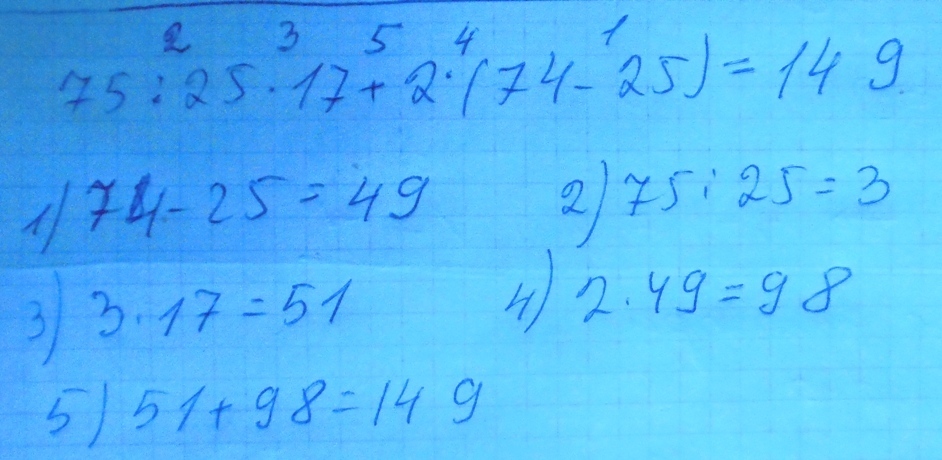 2 3 5 4 1
75:25·17+2·(74-25)=149
1) 74-25=49 2) 75:25=3
3) 3·17=51 4) 2·49=98
5) 51+98=149